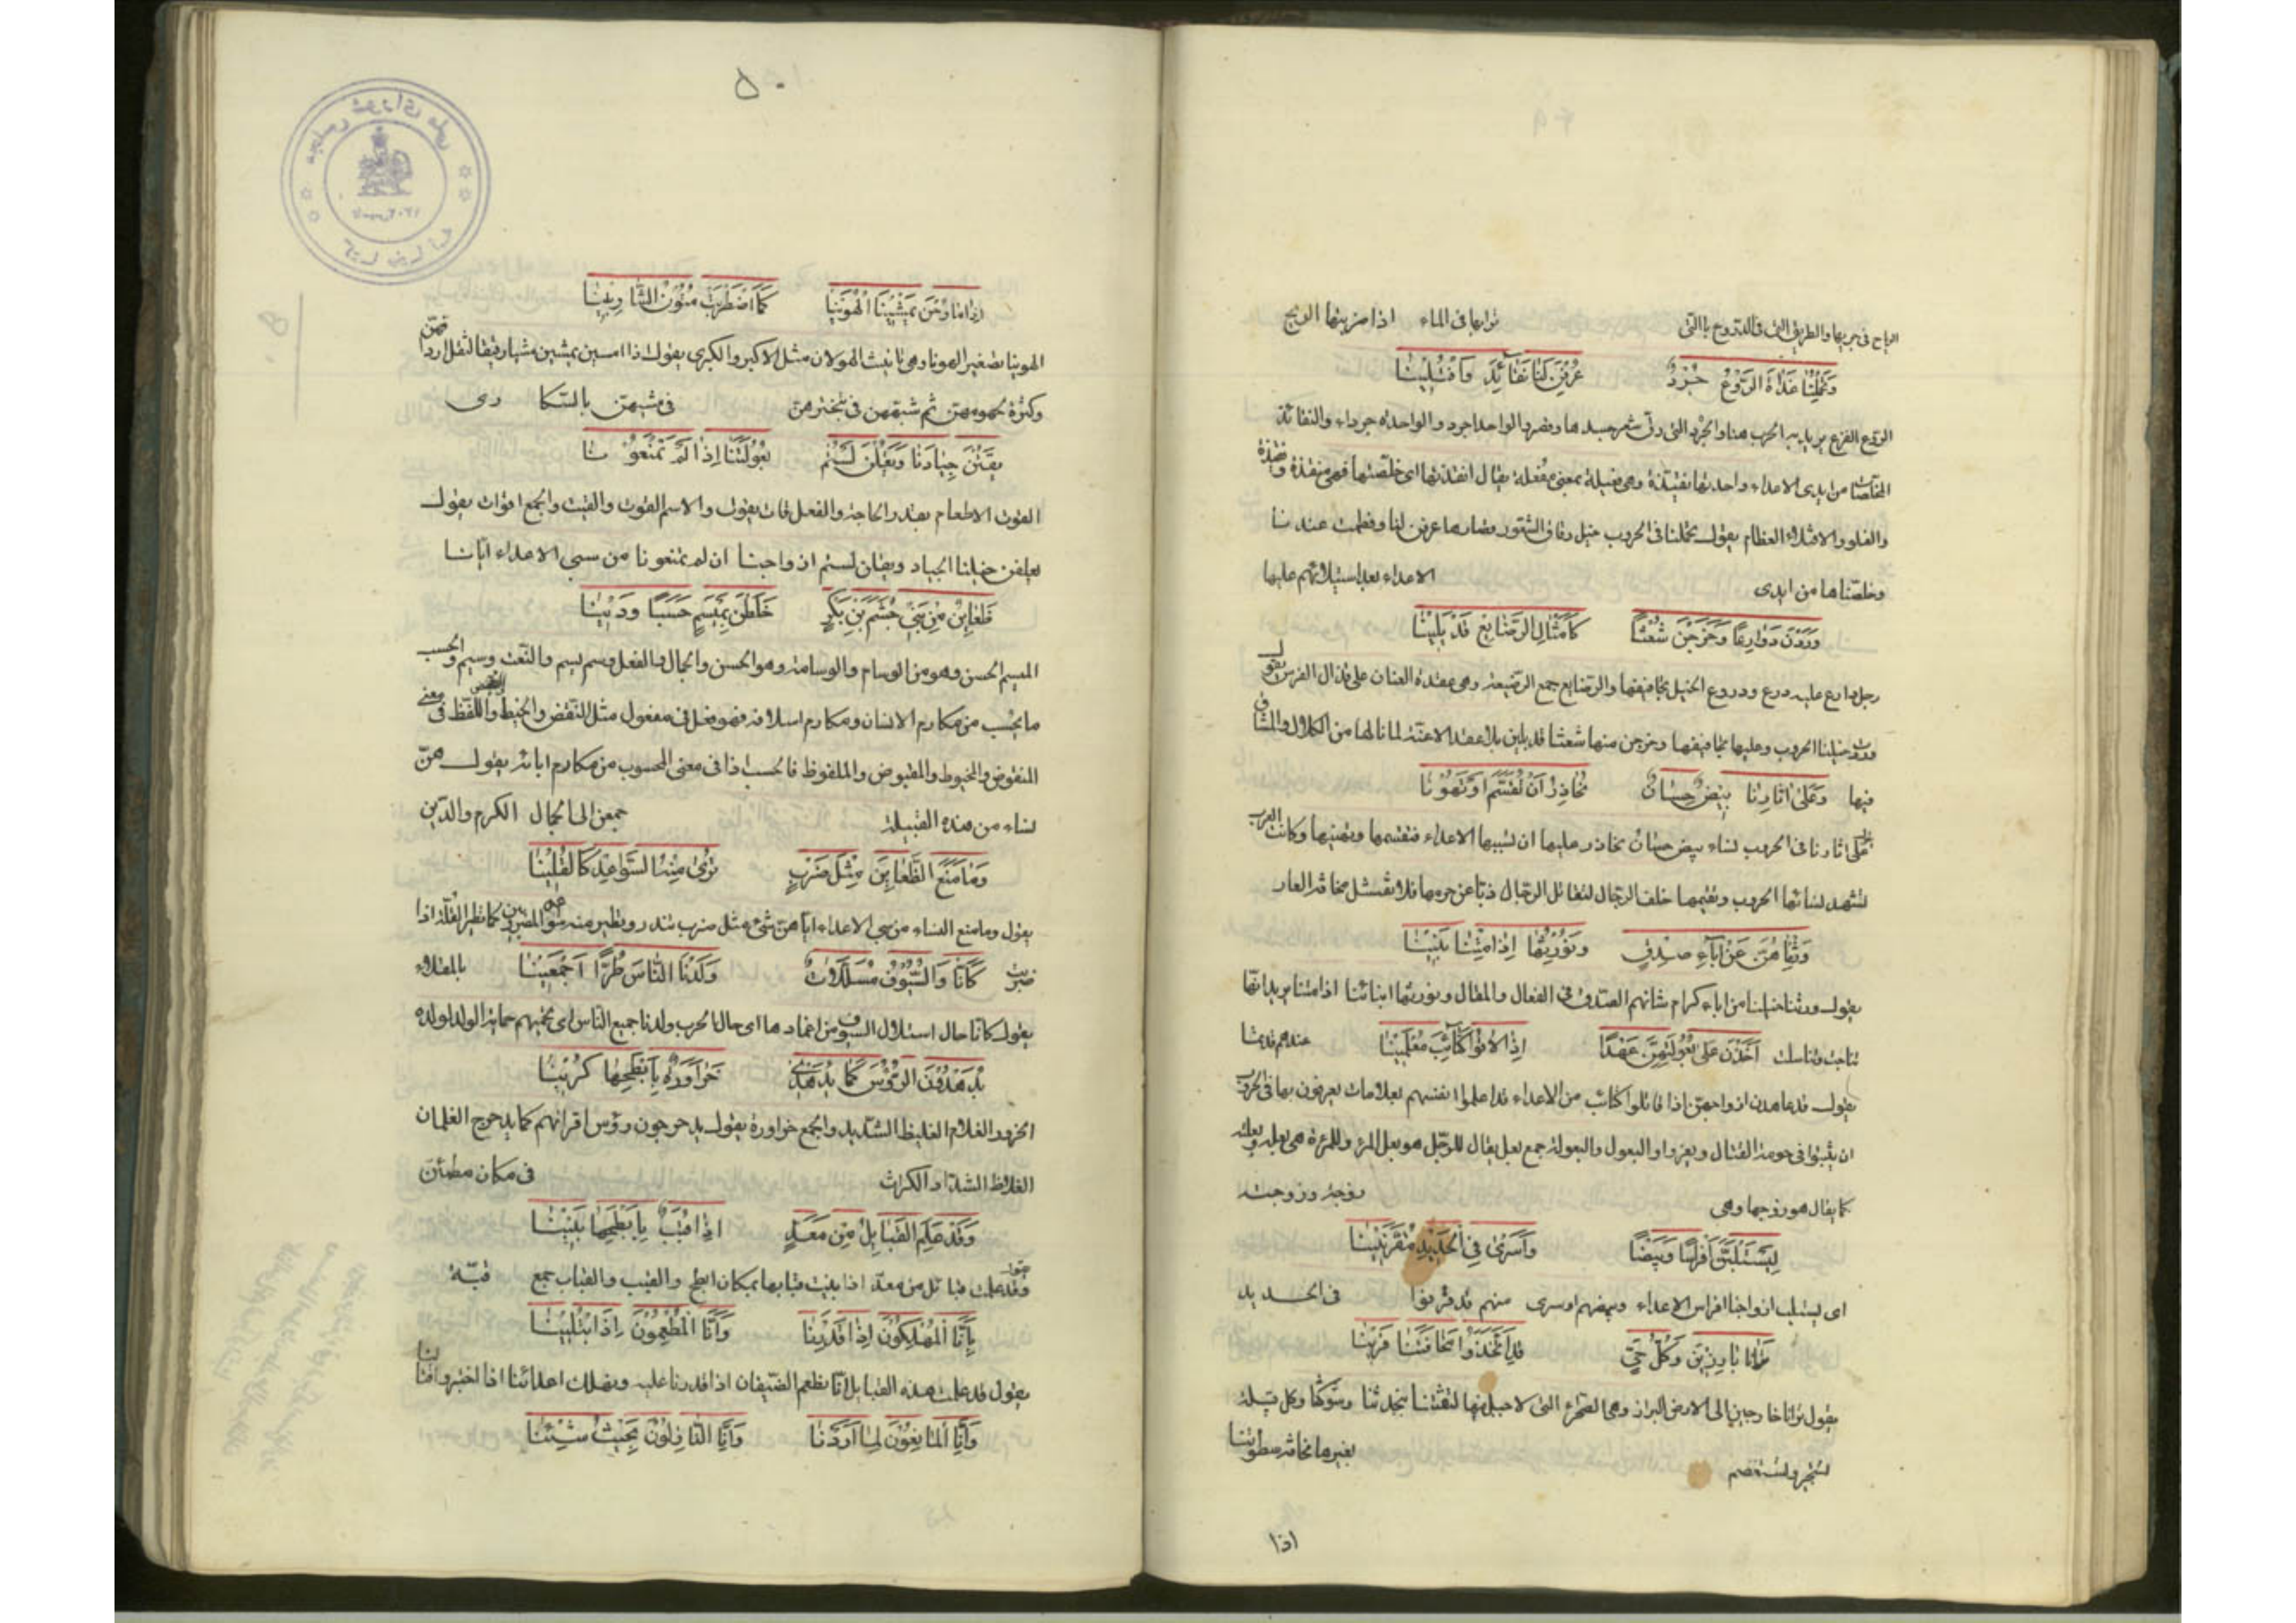 الرياح في جريها والطريق التي في الدروع بالتي تراها في الماء اذا ضربتها الريح
وَتَحْمِلُنَا غَدَاةَ الرَّوْعِ جُرْدٌ عُرِفْنَ لَنَا نَقَائِذَ وَافْتُلِينَا
الروع الفزع يريد به الحرب هنا والجرد التي رق شعر جسدها وقصر والواحد اجرد والواحدة جرداء والنقائذ
المخلصات من ايدي الاعداء واحدتها نقيذة وهي فعيلة بمعنى مفعلة يقال انقذتها اى خلصتها فهي منقذة ونقيذة
والفلو والافتلاء العظام يقول تحملنا في الحروب خيل رقاق الشعور قصارها عرفن لنا وفطمت عندنا
وخلصناها من ايدى الاعداء بعد استيلائهم عليها
وَرَدْنَ دَوَارِعًا وَخَرَجْنَ شُعْثًا كَاَمْثَالِ الرَّصَائِعِ قَدْ بَلِينَا
رجل دارع عليه درع ودروع الخيل تجافيفها والرصايع جمع الرصيعة وهي عقدة العنان على قذال الفرس يقول
وردت خيلنا الحروب وعليها تجافيفها وخرجن منها شعثا قد بلين بلا عقد الاعنة لما نالها من الكلال والمشاق
فيها وَعَلَى اثَارِنَا بِيضٌ حِسَانٌ نُحَاذِرُ اَنْ تُقَسَّمَ اَوْ تَهُونَا
على اثارنا في الحرب نساء بيض حسان نحاذر عليها ان تسبيها الاعداء فتقسمها وتهنيها وكانت العرب
تشهد نسائها الحروب وتقيمها خلف الرجال لتقاتل الرجال ذبا عن حرمها فلا تفشل مخافة العار
وَرِثْنَاهُنَّ عَنْ ابَآءِ صِدْقٍ وَنُورِثُهَا اِذَا مُتْنَا بَنِينَا
يقول ورثنا خيلنا من اباء كرام شانهم الصدق في الفعال والمقال ونورثها ابنائنا اذا متنا يريد انها
تناجت وتناسلت اَخَذْنَ عَلَى بُعُولَتِهِنَّ عَهْدًا اِذَا لَاقَوْا كَتَآئِبَ مُعْلَمِينَا عندهم قديما
يقول قد عاهدن ازواجهن اذا قاتلوا كتائب من الاعداء قد اعلموا انفسهم بعلامات يعرفون بها في الحرب
ان يثبتوا في حومة القتال ويفروا والبعول والبعولة جمع بعل يقال للرجل هو بعل المرءة وللمرءة هي بعله وبعلته
كما يقال هو زوجها وهي زوجه وزوجته
لِيَسْتَلِبُنَّ اَفْرَاسًا وَبِيضًا وَاَسْرَى فِي الْحَدِيدِ مُقَرَّنِينَا
اى ليستلب ازواجنا افراس الاعداء وبيضهم واسرى منهم قد قرنوا في الحديد
تَرَانَا بَارِزِينَ وَكُلُّ حَيٍّ قَدِ اتَّخَذُوا مَخَافَتَنَا قَرِينَا
يقول ترانا خارجين الى الارض البراز وهي الصحراء التي لا جبل فيها لثقتنا بنجدتنا وشوكتنا وكل قبيلة
تستجير وتستعصم بغيرها مخافة سطوتنا
اذا
٥٠
اِذَا مَا رُحْنَ يَمْشِينَ الْهُوَيْنَا كَمَا اضْطَرَبَتْ مُتُونُ الشَّارِبِينَا
الهوينا تصغير الهونا وهي تانيث الاهون مثل الاكبر والكبرى يقول اذا امسين يمشين مشيا رفيقا لثقل اردافهن
وكثرة لحومهن ثم شبههن في تبخترهن في مشيهن بالسكارى
يَقُتْنَ جِيَادَنَا وَيَقُلْنَ لَسْتُمْ بُعُولَتَنَا اِذَا لَمْ تَمْنَعُونَا
القوت الاطعام بقدر الحاجة والفعل قات يقوت والاسم القوت والقيت والجمع اقوات يقول
يعلفن خيلنا الجياد ويقلن لستم ازواجنا ان لم تمنعونا من سبي الاعداء ايانا
ظَعَايِنُ مِنْ بَنِي جُشَمِ بْنِ بَكْرٍ خَلَطْنَ بِمَيْسَمٍ حَسَبًا وَدِينَا
الميسم الحسن وهو من الوسام والوسامة وهو الحسن والجمال والفعل وسم يسم والنعت وسيم والحسب
ما يحسب من مكارم الانسان ومكارم اسلافه فهو فعل في مفعول مثل النقض والخبط والقبض واللفظ في معنى
المنقوض والمخبوط والمقبوض والملفوظ فالحسب اذا في معنى المحسوب من مكارم ابائه يقول هن
نساء من هذه القبيلة جمعن الى الجمال الكرم والدين
وَمَا مَنَعَ الظَّعَايِنَ مِثْلُ ضَرْبٍ تَرَى مِنْهُ السَّوَاعِدَ كَالْقُلِينَا
يقول وما منع النساء من سبي الاعداء اياهن شئ مثل ضرب تندر وتطير منه سواعد المضروبين كما تطير القلة اذا
ضربت كَاَنَّا وَالسُّيُوفُ مُسَلَّلَاتٌ وَلَدْنَا النَّاسَ طُرًّا اَجْمَعِينَا بالمقلاء
يقول كانا حال استلال السيوف من اغمادها اى حال الحرب ولدنا جميع الناس اى نحميهم حماية الوالد لولده
يُدَهْدُونَ الرُّؤُسَ كَمَا يُدَهْدِي حَزَاوِرَةٌ بِاَبْطَحِهَا كُرِينَا
الحزور الغلام الغليظ الشديد والجمع حزاورة يقول يدحرجون رؤس اقرانهم كما يدحرج الغلمان
الغلاظ الشداد الكرات في مكان مطمئن
وَقَدْ عَلِمَ الْقَبَايِلُ مِنْ مَعَدٍّ اِذَا قُبَبٌ بِاَبْطَحِهَا بُنِينَا
وقد علمت قبائل من معد اذا بنيت قبابها بمكان ابطح والقبب والقباب جمع قبة
بِاَنَّا الْمُهْلِكُونَ اِذَا قَدَرْنَا وَاَنَّا الْمُطْعِمُونَ اِذَا ابْتُلِينَا
يقول قد علمت هذه القبايل انا نطعم الضيفان اذا قدرنا عليه ونهلك اعدائنا اذا اختبروا قتالنا
وَاَنَّا الْمَانِعُونَ لِمَا اَرَدْنَا وَاَنَّا النَّازِلُونَ بِحَيْثُ شِئْنَا